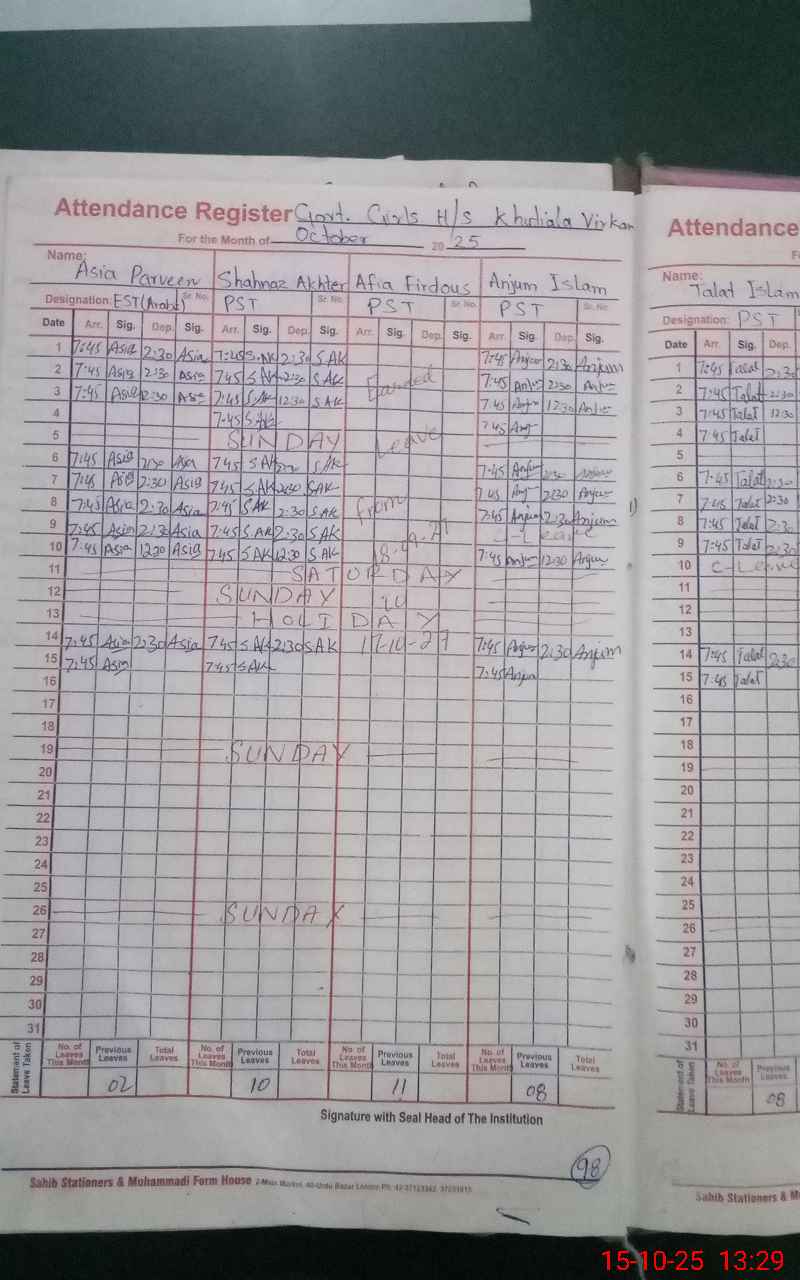 Attendance Register Govt. Girls H/S Khudiala Virkan
For the Month of October 2025
Name: Asia Parveen Shahnaz Akhter Afia Firdous Anjum Islam
Designation: EST(Arabi) Sr. No. PST Sr. No. PST Sr. No. PST Sr. No.
Date Arr. Sig. Dep. Sig. Arr. Sig. Dep. Sig. Arr. Sig. Dep. Sig. Arr. Sig. Dep. Sig.
1 7:45 Asia 2:30 Asia 7:45 S.AK 2:30 SAK 7:45 Anjum 2:30 Anjum
2 7:45 Asia 2:30 Asia 7:45 SAK 2:30 SAK 7:45 2:30
3 7:45 Asia 2:30 Asia 7:45 SAK 12:30 SAK 7:45 Anjum 12:30
4 7:45 SAK 7:45 Anj
5 SUNDAY Leave
6 7:45 Asia 2:30 Asia 7:45 SAK SAK 7:45 Anjum
7 7:45 Asia 2:30 Asia 7:45 SAK 2:30 SAK 7:45 Anj 2:30 Anjum
8 7:45 Asia 2:30 Asia 7:45 SAK 2:30 SAK from 7:45 Anjum 2:30 Anjum
9 7:45 Asia 2:30 Asia 7:45 SAK 2:30 SAK C-Leave
10 7:45 Asia 12:30 Asia 7:45 SAK 12:30 SAK 7:45 Anjum 12:30 Anjum
11 SATURDAY
12 SUNDAY
13 HOLIDAY
14 7:45 Asia 2:30 Asia 7:45 SAK 2:30 SAK 7:45 Anjum 2:30 Anjum
15 7:45 Asia 7:45 SAK 7:45 Anjum
16
17
18
19 SUNDAY
20
21
22
23
24
25
26 SUNDAY
27
28
29
30
31
Statement of Leave Taken No. of Leaves This Month Previous Leaves Total Leaves No. of Leaves This Month Previous Leaves Total Leaves No. of Leaves This Month Previous Leaves Total Leaves No. of Leaves This Month Previous Leaves Total Leaves
02 10 11 08
Signature with Seal Head of The Institution
98
Sahib Stationers & Mohammadi Form House 2-Main Market, 40-Urdu Bazar Lahore
Attendance
Name: Talat Islam
Designation: PST
Date Arr. Sig. Dep.
1 7:45 Talat 2:30
2 7:45 Talat 2:30
3 7:45 Talat 12:30
4 7:45 Talat
5
6 7:45 Talat 2:30
7 7:45 Talat 2:30
8 7:45 Talat 2:30
9 7:45 Talat 2:30
10 C-Leave
11
12
13
14 7:45 Talat 2:30
15 7:45 Talat
16
17
18
19
20
21
22
23
24
25
26
27
28
29
30
31
Statement of Leave Taken No. of Leaves This Month Previous Leaves
08
Sahib Stationers &
15-10-25 13:29